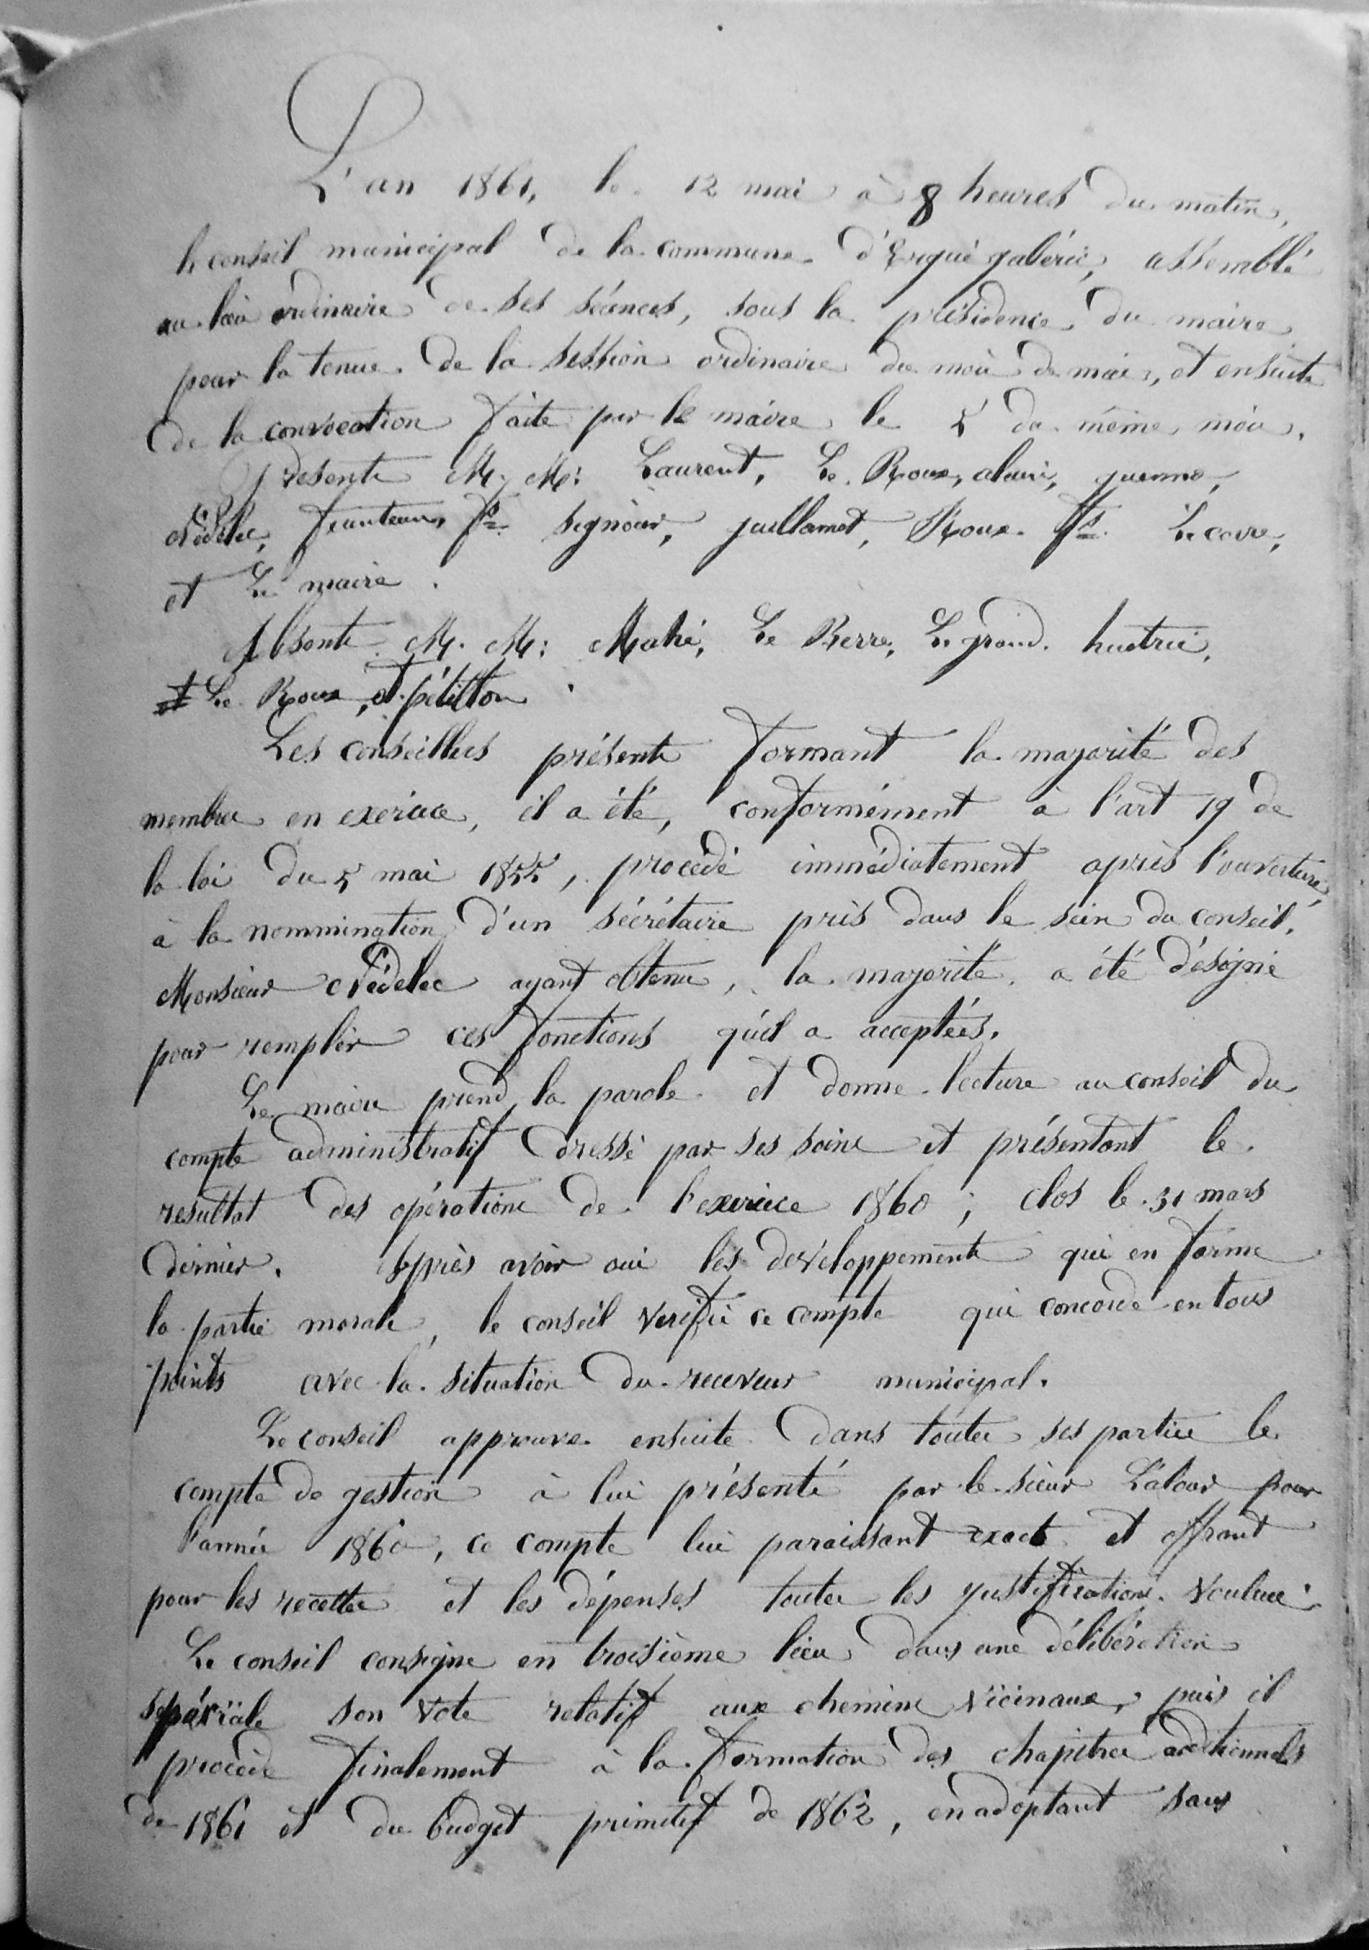 L'an 1861, le 12 mai à 8 heures du matin,
le conseil municipal de la commune d'Ergué gabéric, assemblé
au lieu ordinaire de ses séances, sous la présidence du maire
pour la tenue de la session ordinaire du mois de mai, et ensuite
de la convocation faite par le maire le 5 du même mois.
Présents M. M: Laurent, Le Roux, alain, guenno,
Nédélec, feunteun fs signour, guillamet, Roux fs Lecorre,
et Le maire.
Absents M. M: Mahé, Le Berre, Le grand, huetric,
Le Roux, et pétillon
Les conseillers présents formant la majorité des
membres en exercice, il a été, conformément à l'art 19 de
la loi du 5 mai 1855, procédé immédiatement après l'ouverture,
à la nommination d'un sécrétaire pris dans le sein du conseil.
Monsieur Nédélec ayant obtenu, la majorité a été désigné
pour remplir ces fonctions qu'il a acceptées.
Le maire prend la parole et donne lecture au conseil du
compte administratif dressé par ses soins et présentant le
résultat des opérations de l'exercice 1860; clos le 31 mars
dernier. Après avoir oui les développements qui en forme
la partie morale, le conseil vérifie ce compte qui concorde en tous
points avec la situation du receveur municipal.
Le conseil approuve ensuite dans toutes ses parties le
compte de gestion à lui présenté par le sieur Latour pour
l'année 1860, ce compte lui paraissant exact et offrant
pour les recettes et les dépenses toutes les justifications voulues.
Le conseil consigne en troisième lieu dans une délibération
spéciale son vote relatif aux chemins vicinaux, puis il
procède finalement à la formation des chapitres additionnels
de 1861 et du budget primitif de 1862, en adoptant sans